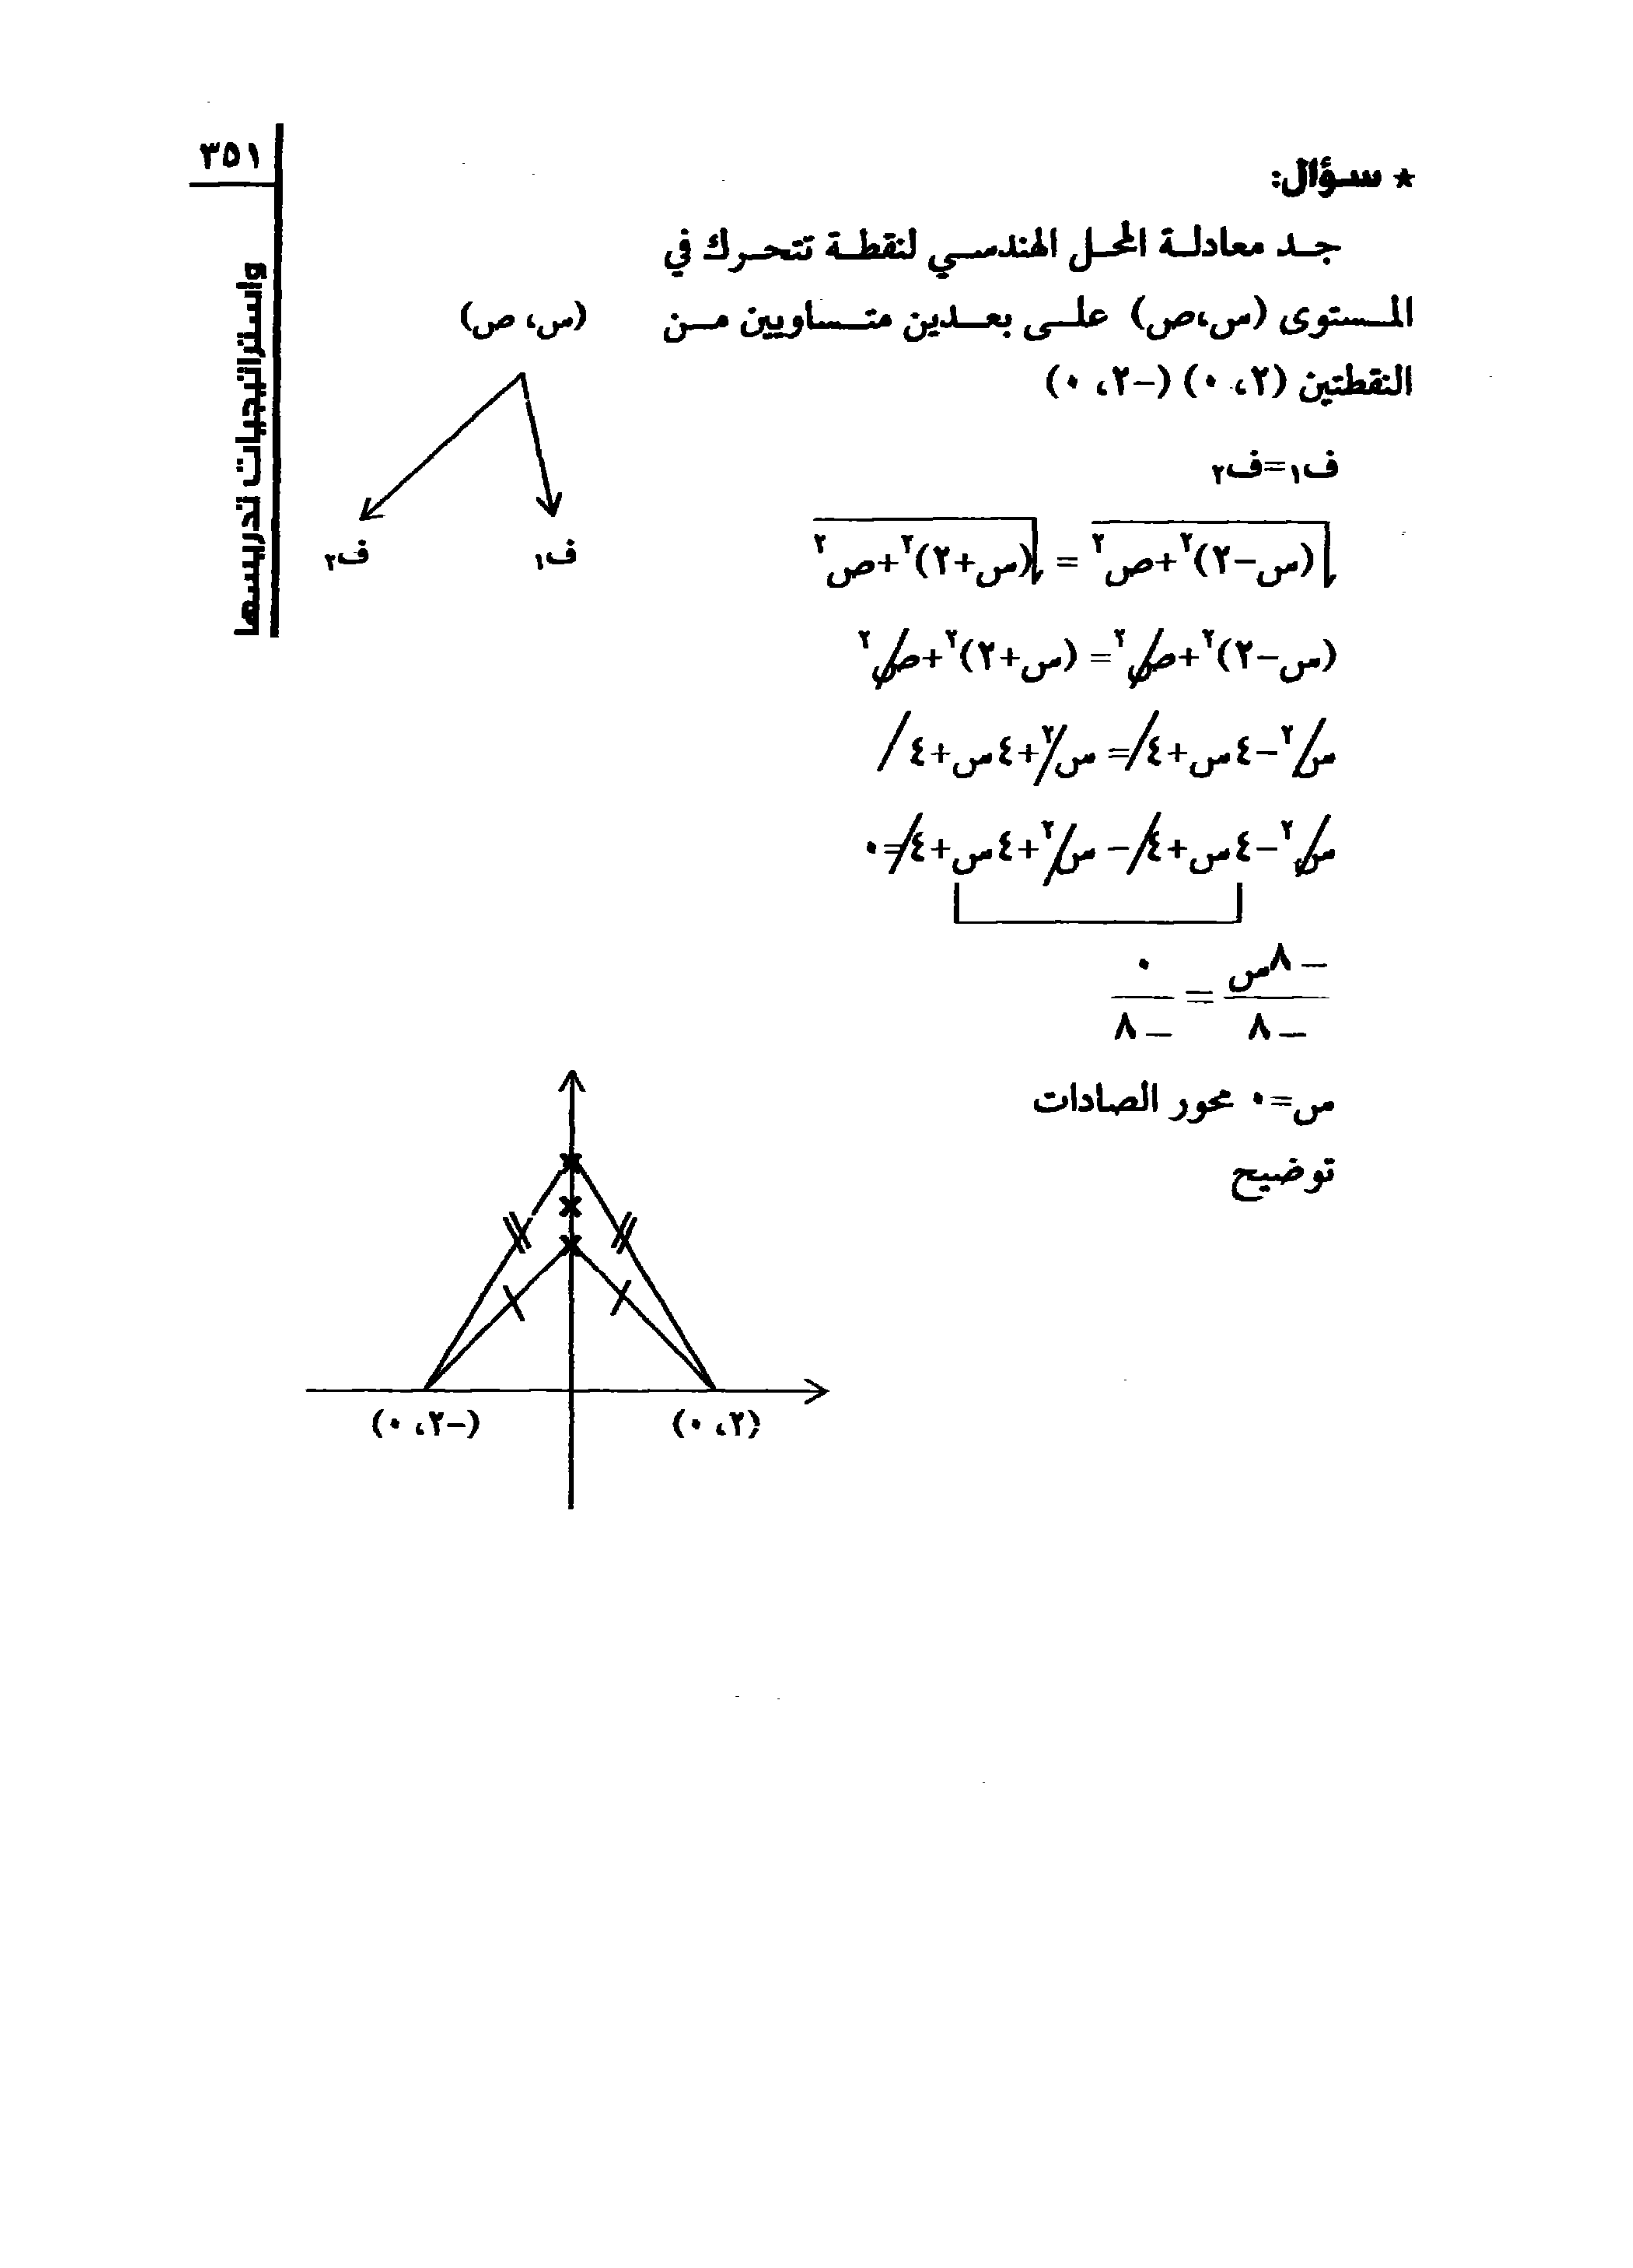 ٣٥١
واستراتيجيات تدريسها
* سؤال:
جد معادلة المحل الهندسي لنقطة تتحرك في
المستوى (س،ص) على بعدين متساويين من
النقطتين (٢، ٠) (-٢، ٠)
(س، ص)
ف١ ف٢
ف١=ف٢
√(س-٢)٢+ص٢ = √(س+٢)٢+ص٢
(س-٢)٢+ص٢= (س+٢)٢+ص٢
س٢-٤س+٤= س٢+٤س+٤
س٢-٤س+٤- س٢+٤س+٤=٠
-٨س/-٨ = ٠/-٨
س=٠ محور الصادات
توضيح
(٢، ٠) (-٢، ٠)